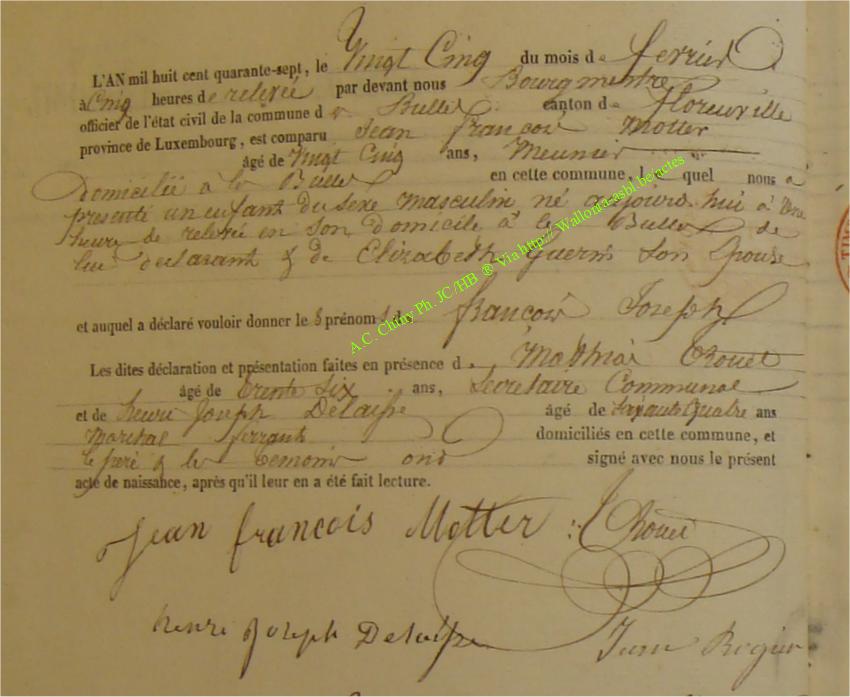 L'AN mil huit cent quarante-sept, le Vingt Cinq du mois de fevrier
à Cinq heures de relevée par devant nous Bourgmestre
officier de l'état civil de la commune de Bulles canton de florenville
province de Luxembourg, est comparu Jean françois Motter
âgé de Vingt Cinq ans, Meunier
Domicilié à la Bulles en cette commune, lequel nous a
presenté un enfant du sexe masculin né aujourd'hui à Une
heure de relevée en son domicile à la Bulles de
lui declarant & de Elizabeth guerin son Epouse
et auquel a déclaré vouloir donner les prénoms de françois Joseph
Les dites déclaration et présentation faites en présence de Mathias Chouet
âgé de trente six ans, Secretaire Communal
et de henri Joseph Delaisse âgé de soixante quatre ans
Marchal ferrant domiciliés en cette commune, et
le pere & les temoins ont signé avec nous le présent
acte de naissance, après qu'il leur en a été fait lecture.
Jean françois Motter Chouet
henri Joseph Delaisse
A.C. Chiny Ph. JC/HB ® Via http:// Wallonia-asbl.be/actes